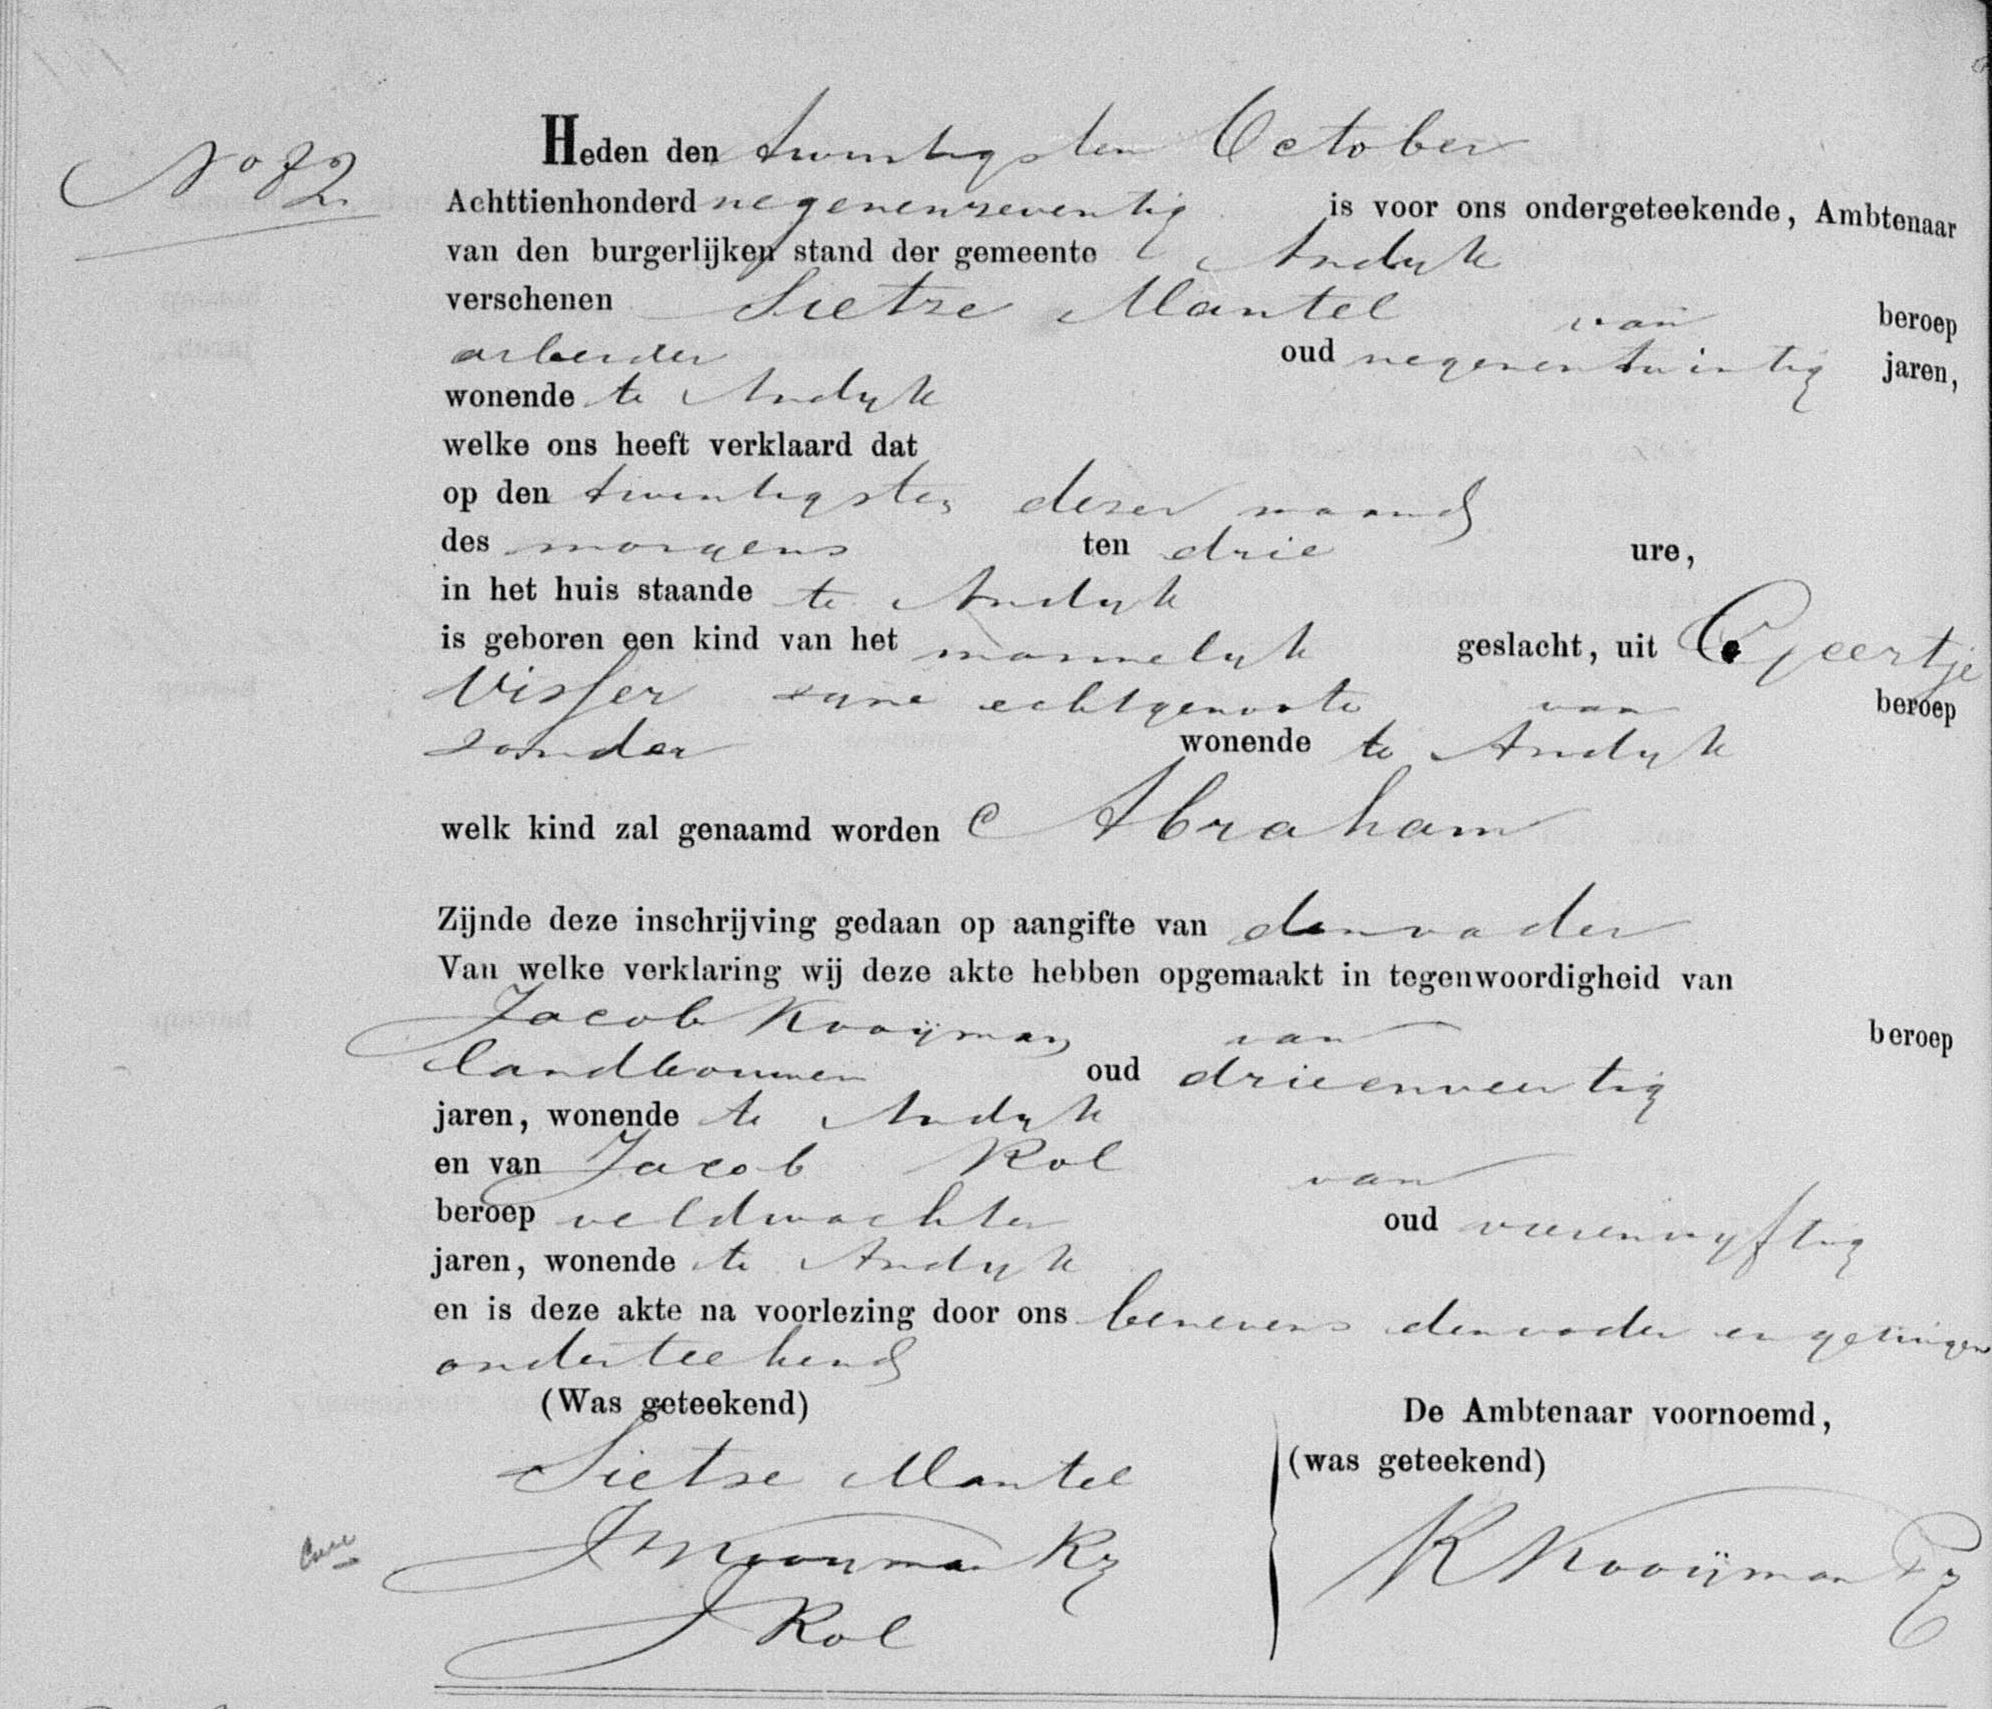 No 82
Heden den twintigsten October
Achttienhonderd negenenzeventig is voor ons ondergeteekende, Ambtenaar
van den burgerlijken stand der gemeente Andyk
verschenen Sietse Mantel van beroep
arbeider oud negenentwintig jaren,
wonende te Andyk
welke ons heeft verklaard dat
op den twintigsten dezer maand
des morgens ten drie ure,
in het huis staande te Andyk
is geboren een kind van het mannelyk geslacht, uit Geertje
Visser zyne echtgenoote van beroep
zonder wonende te Andyk
welk kind zal genaamd worden Abraham
Zijnde deze inschrijving gedaan op aangifte van den vader
Van welke verklaring wij deze akte hebben opgemaakt in tegenwoordigheid van
Jacob Kooijman van beroep
landbouwer oud drieenveertig
jaren, wonende te Andyk
en van Jacob Kol van
beroep veldwachter oud vierenvyftig
jaren, wonende te Andyk
en is deze akte na voorlezing door ons benevens den vader en getuigen
onderteekend
(Was geteekend) De Ambtenaar voornoemd,
Sietse Mantel (was geteekend)
J Kooyman Kz K Kooijman Pz
J Kol